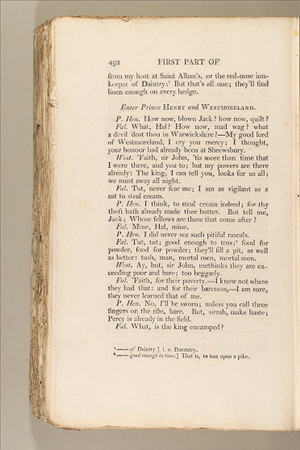 492 FIRST PART OF
from my host at Saint Alban's, or the red-nose inn-
keeper of Daintry:¹ But that's all one; they'll find
linen enough on every hedge.
Enter Prince HENRY and WESTMORELAND.
P. Hen. How now, blown Jack? how now, quilt?
Fal. What, Hal? How now, mad wag? what
a devil dost thou in Warwickshire?—My good lord
of Westmoreland, I cry you mercy; I thought,
your honour had already been at Shrewsbury.
West. 'Faith, sir John, 'tis more than time that
I were there, and you too; but my powers are there
already: The king, I can tell you, looks for us all;
we must away all night.
Fal. Tut, never fear me; I am as vigilant as a
cat to steal cream.
P. Hen. I think, to steal cream indeed; for thy
theft hath already made thee butter. But tell me,
Jack; Whose fellows are these that come after?
Fal. Mine, Hal, mine.
P. Hen. I did never see such pitiful rascals.
Fal. Tut, tut; good enough to toss;² food for
powder, food for powder; they'll fill a pit, as well
as better: tush, man, mortal men, mortal men.
West. Ay, but, sir John, methinks they are ex-
ceeding poor and bare; too beggarly.
Fal. 'Faith, for their poverty,—I know not where
they had that: and for their bareness,—I am sure,
they never learned that of me.
P. Hen. No, I'll be sworn; unless you call three
fingers on the ribs, bare. But, sirrah, make haste;
Percy is already in the field.
Fal. What, is the king encamped?
¹ —— of Daintry:] i. e. Daventry.
² —— good enough to toss;] That is, to toss upon a pike.